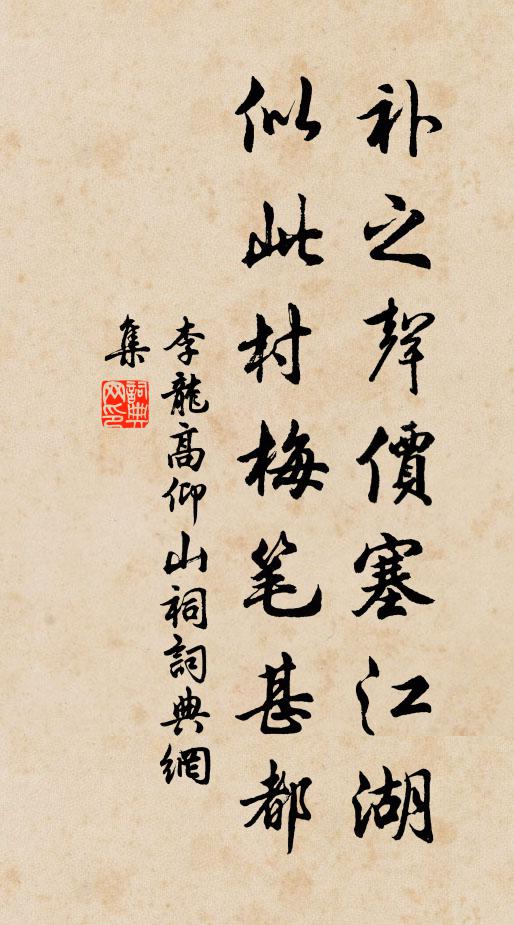 补之聲價塞江湖
似此村梅笔甚都
李龍高仰山祠詞典網
集
詞典
网印